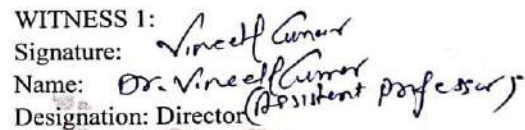 WITNESS 1:
Signature: Vineet Kumar
Name: Dr. Vineet Kumar
Designation: Director (Assistant professor)